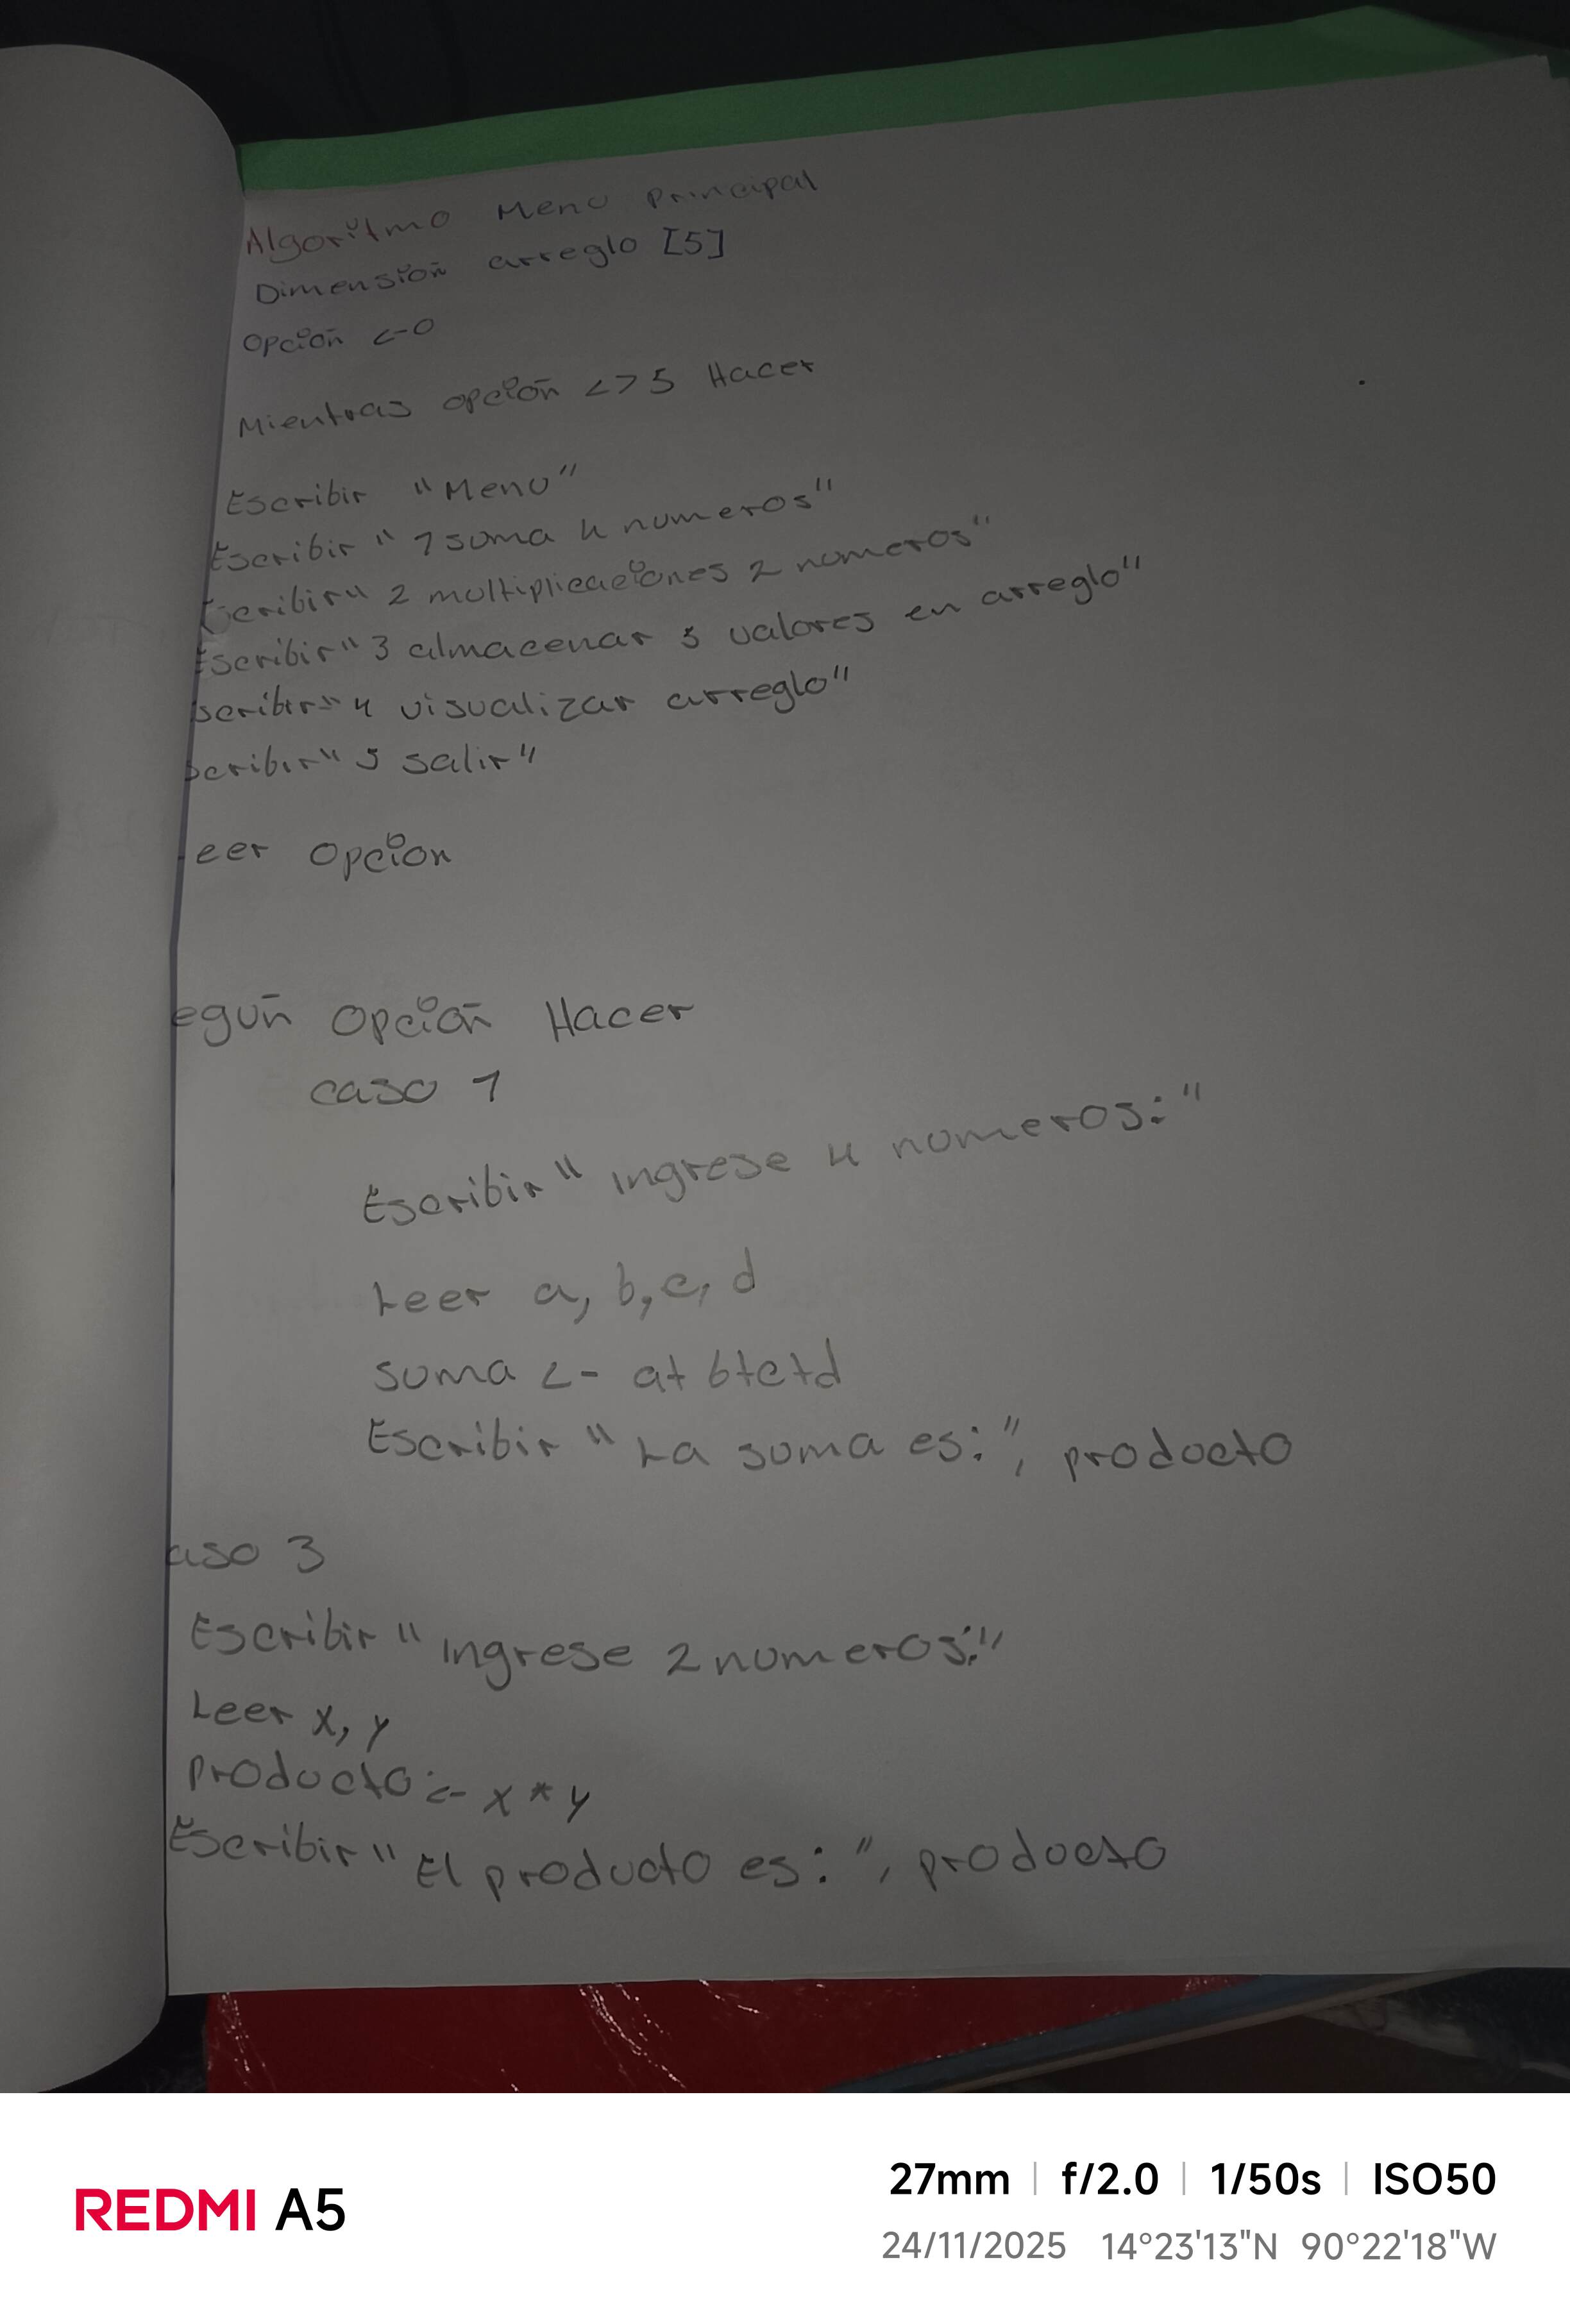 Algoritmo Menu Principal
Dimensión arreglo [5]
Opción <-0
Mientras opción <>5 Hacer
Escribir "Menu"
Escribir "1 suma 4 numeros"
scribir" 2 multiplicaciones 2 numeros"
Escribir" 3 almacenar 5 valores en arreglo"
scribir" 4 visualizar arreglo"
scribir" 5 salir"
eer Opcion
egún Opción Hacer
caso 1
Escribir" ingrese 4 numeros:"
Leer a, b, c, d
suma <- a+b+c+d
Escribir "La suma es:", producto
aso 3
Escribir" ingrese 2 numeros:"
Leer x, y
Producto <- x * y
Escribir" El producto es:", producto
REDMI A5
27mm | f/2.0 | 1/50s | ISO50
24/11/2025 14°23'13"N 90°22'18"W